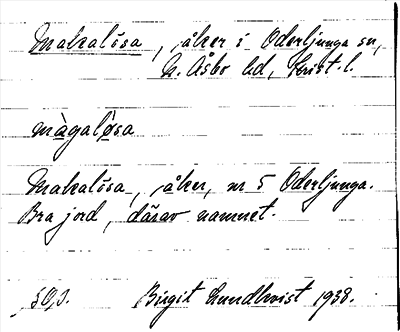 Makalösa, åker i Oderljunga sn,
N. Åsbo hd, Krist. l.
màgaløsa
Makalösa, åker, nr 5 Oderljunga.
Bra jord, därav namnet.
Birgit Lundkvist 1938.